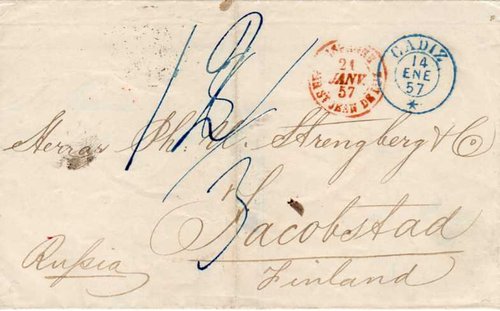 21
JANV.
57
ST JEAN DE
CADIZ
14
ENE
57
12/
3
Herrar Ph. U. Strengberg & Co
Jacobstad
Rußia
Finland